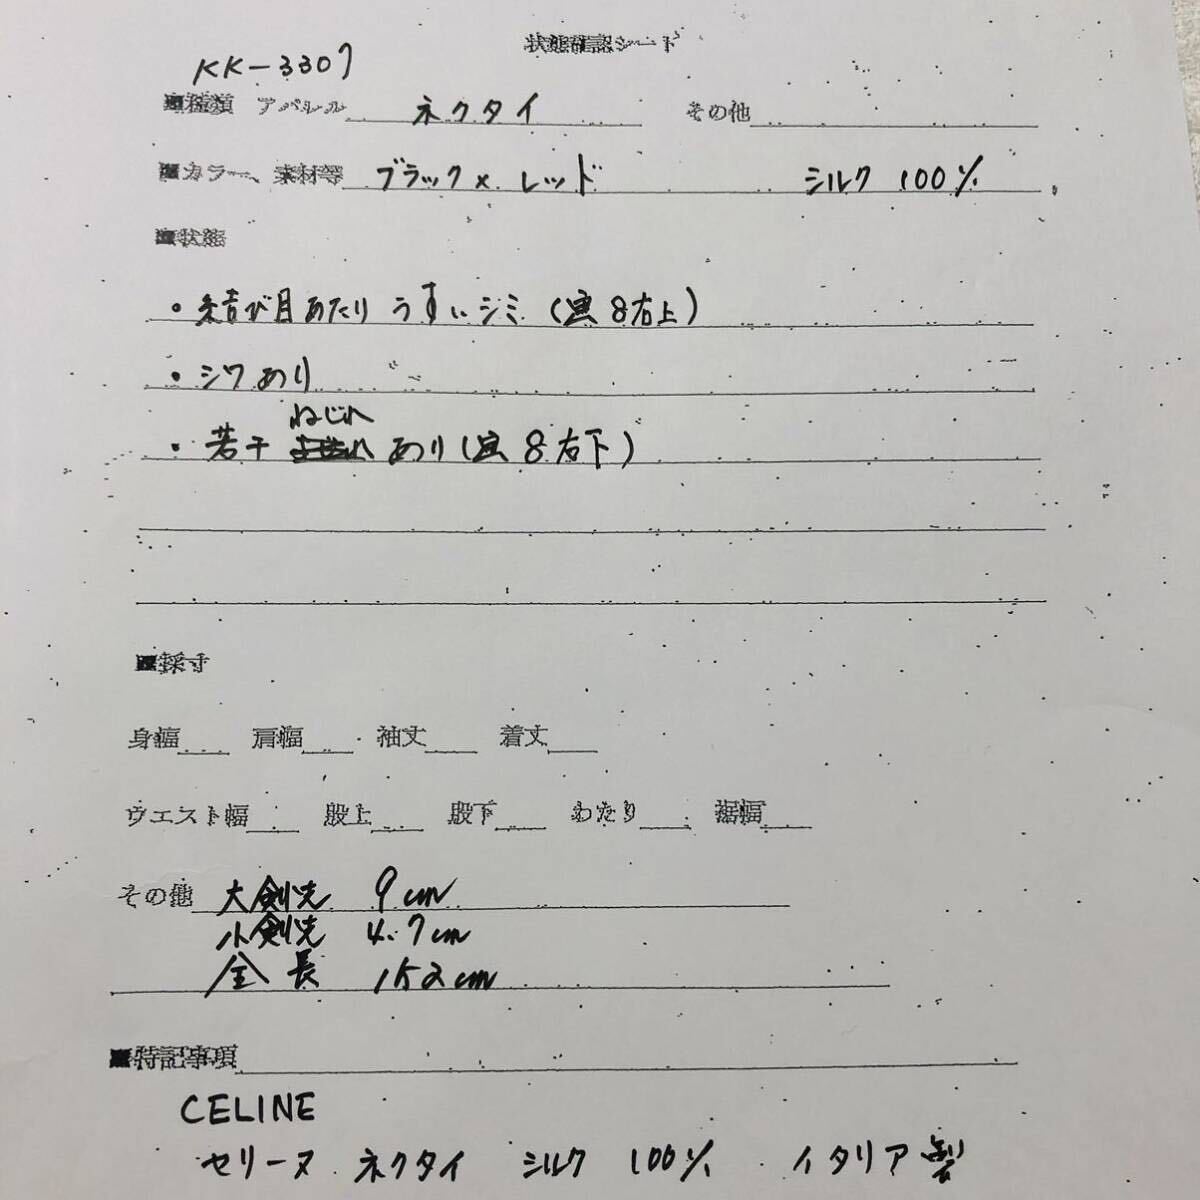 状態確認シート
KK-3307
■種類 アパレル ネクタイ その他
■カラー、素材等 ブラック×レッド シルク 100%
■状態
・結び目あたり うすいシミ (画8右上)
・シワあり
ねじれ
・若干 あり(画8右下)
■採寸
身幅 肩幅 袖丈 着丈
ウエスト幅 股上 股下 わたり 裾幅
その他 大剣先 9cm
小剣先 4.7cm
全長 152cm
■特記事項
CELINE
セリーヌ ネクタイ シルク 100% イタリア製